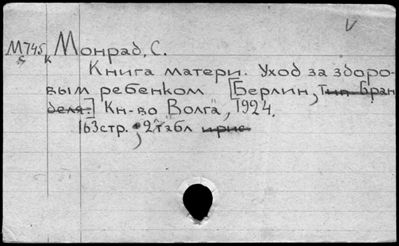 М745 к Монрад, С.
Книга матери. Уход за здоро-
вым ребенком [Берлин, Тип Бран
деля.] Кн-во "Волга", 1924.
163стр., 2 табл